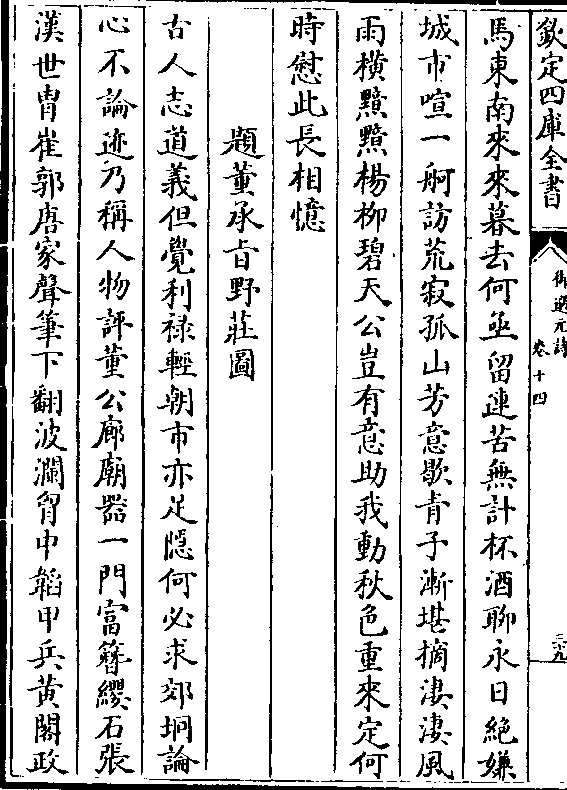 欽定四庫全書
御選元詩
卷十四
三九
馬東南來來暮去何亟留連苦無計杯酒聊永日絶嫌
城市喧一舸訪荒寂孤山芳意歇青子漸堪摘淒淒風
雨橫黯黯楊柳碧天公豈有意助我動秋色重來定何
時慰此長相憶
題董承旨野莊圖
古人志道義但覺利祿輕朝市亦足隱何必求郊坰論
心不論迹乃稱人物評董公廊廟器一門富簪纓石張
漢世胄崔郭唐家聲筆下翻波瀾胷中韜甲兵黄閣政